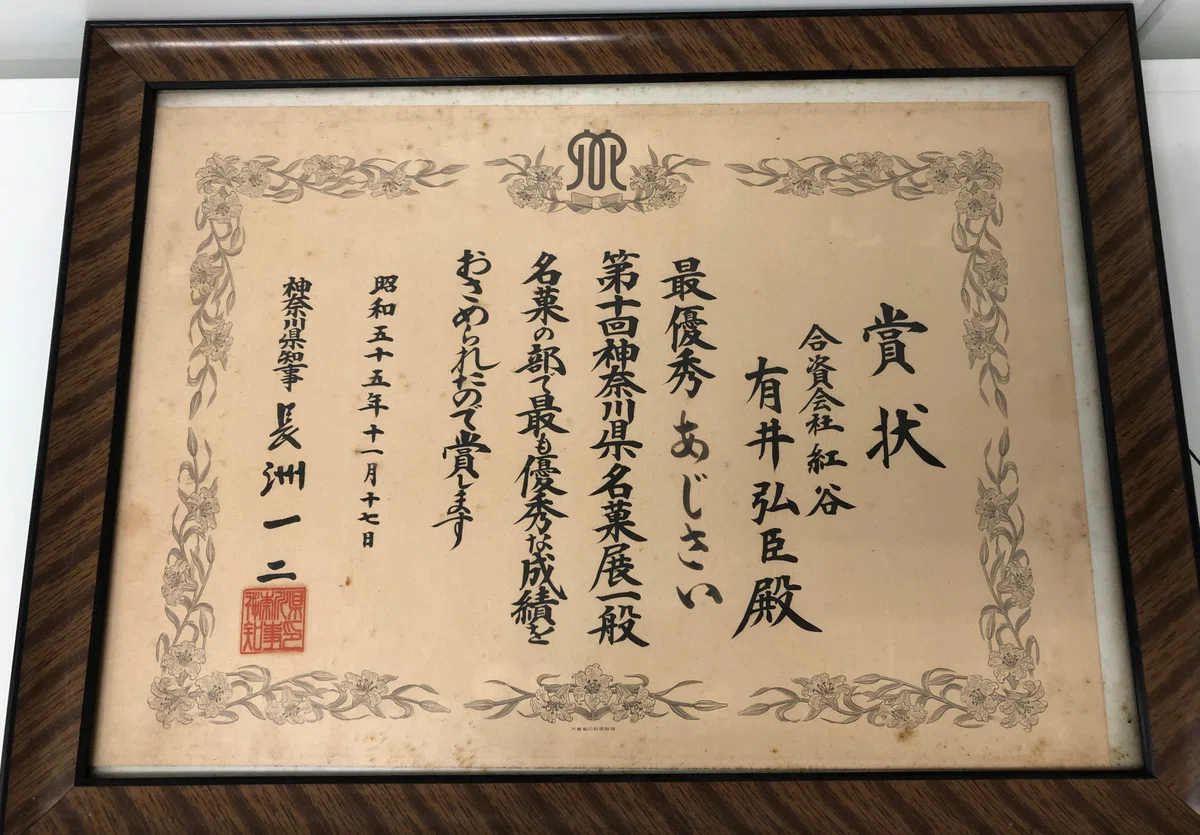 賞状
合資会社紅谷
有井弘臣殿
最優秀 あじさい
第十回神奈川県名菓展一般
名菓の部で最も優秀な成績を
おさめられたので賞します
昭和五十五年十一月十七日
神奈川県知事 長洲一二